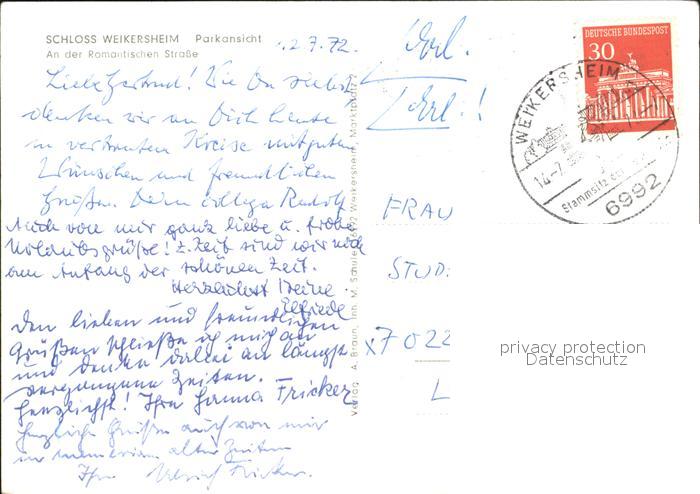 SCHLOSS WEIKERSHEIM Parkansicht
An der Romantischen Straße
12.7.72.
Liebe Gertrud! Wie Du siehst,
denken wir an Dich heute
in vertrautem Kreise mit guten
Wünschen und freundlichen
Grüßen. Dein Rudolf
Auch von mir ganz liebe u. frohe
Urlaubsgrüße! z. Zeit sind wir noch
am Anfang der schönen Zeit.
Herzlichst Deine
Elfriede
Den lieben und freundlichen
Grüßen schließe ich mich an
und denke dabei an längst
vergangene Zeiten.
Herzlichst! Ihre Hanna Fricker
Herzliche Grüße auch von mir
in memoriam alter Zeiten
Ihr Ulrich Fricker.
Verlag A. Braun, Inh. M. Schule, 6992 Weikersheim, Marktplatz
FRAU
STUD.
x7022
L
DEUTSCHE BUNDESPOST
30
WEIKERSHEIM
14.-7.
Stammsitz der
6992
privacy protection
Datenschutz